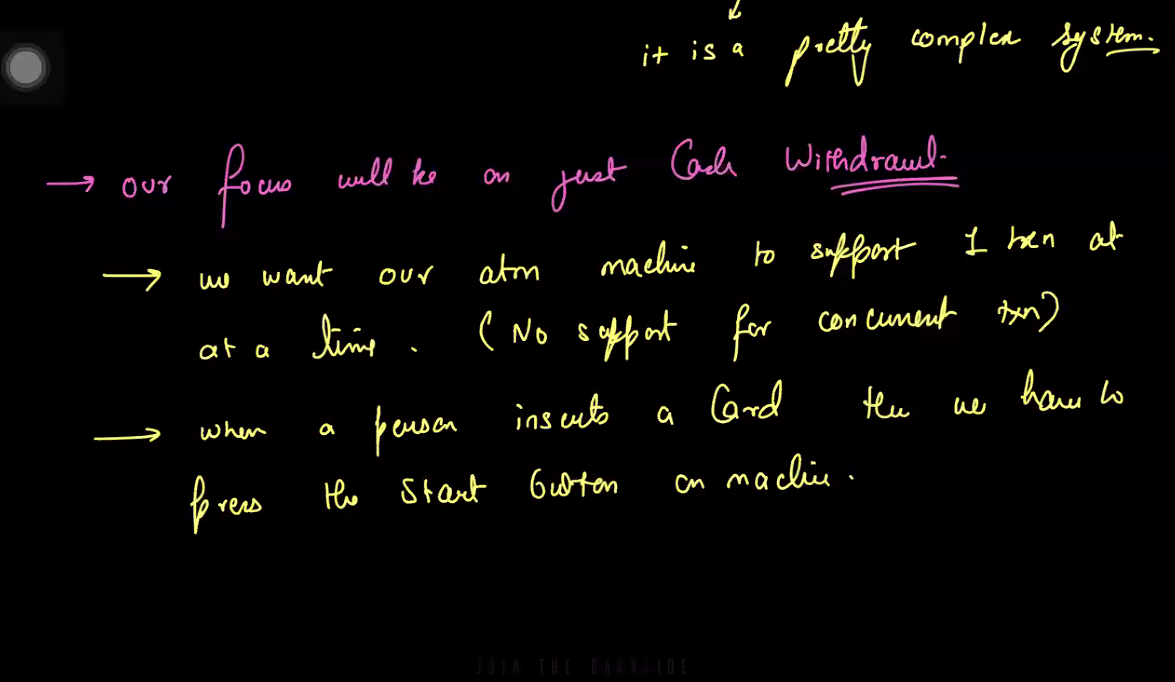 it is a pretty complex system.
→ our focus will be on just Cash Withdrawl.
→ we want our atm machine to support 1 txn at
at a time. (No support for concurrent txn)
→ when a person inserts a Card the we have to
press the start button on machine.
JOIN THE DARKSIDE